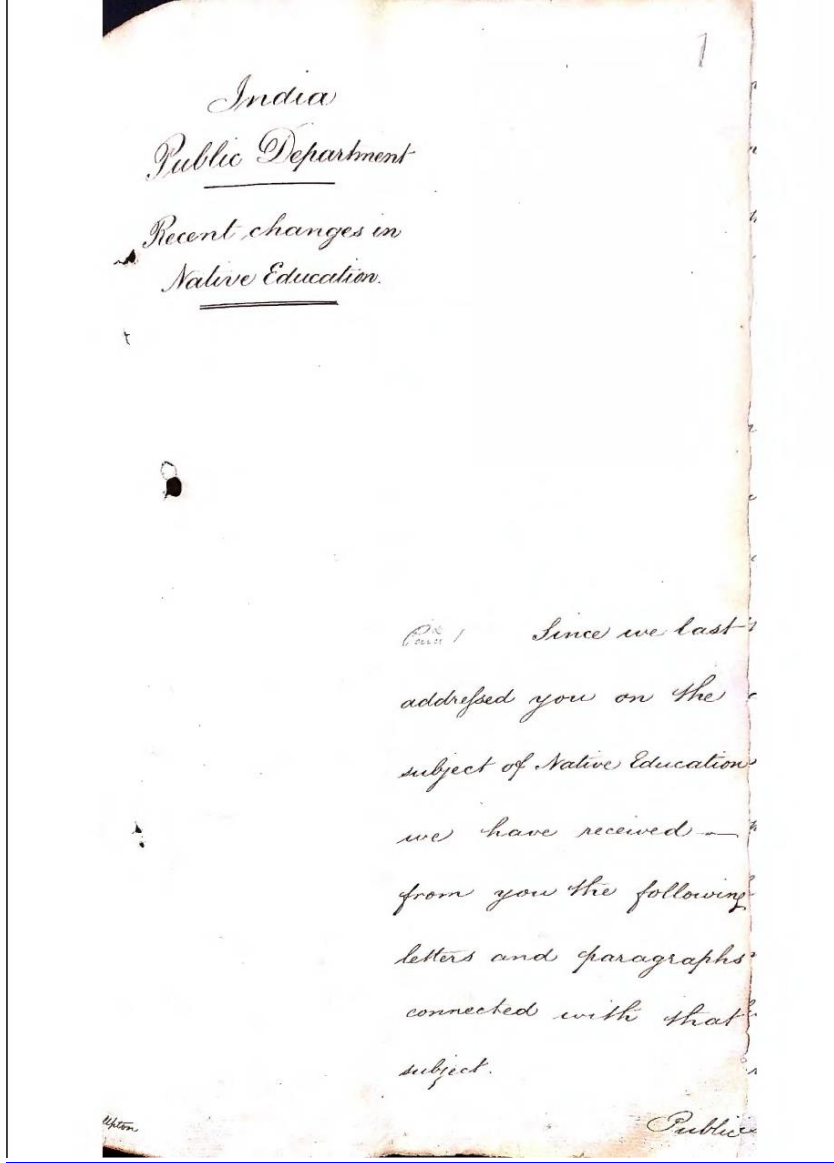 1
India
Public Department
Recent changes in
Native Education.
Para 1 Since we last
addressed you on the
subject of Native Education
we have received —
from you the following
letters and paragraphs
connected with that
subject.
Upton
Public